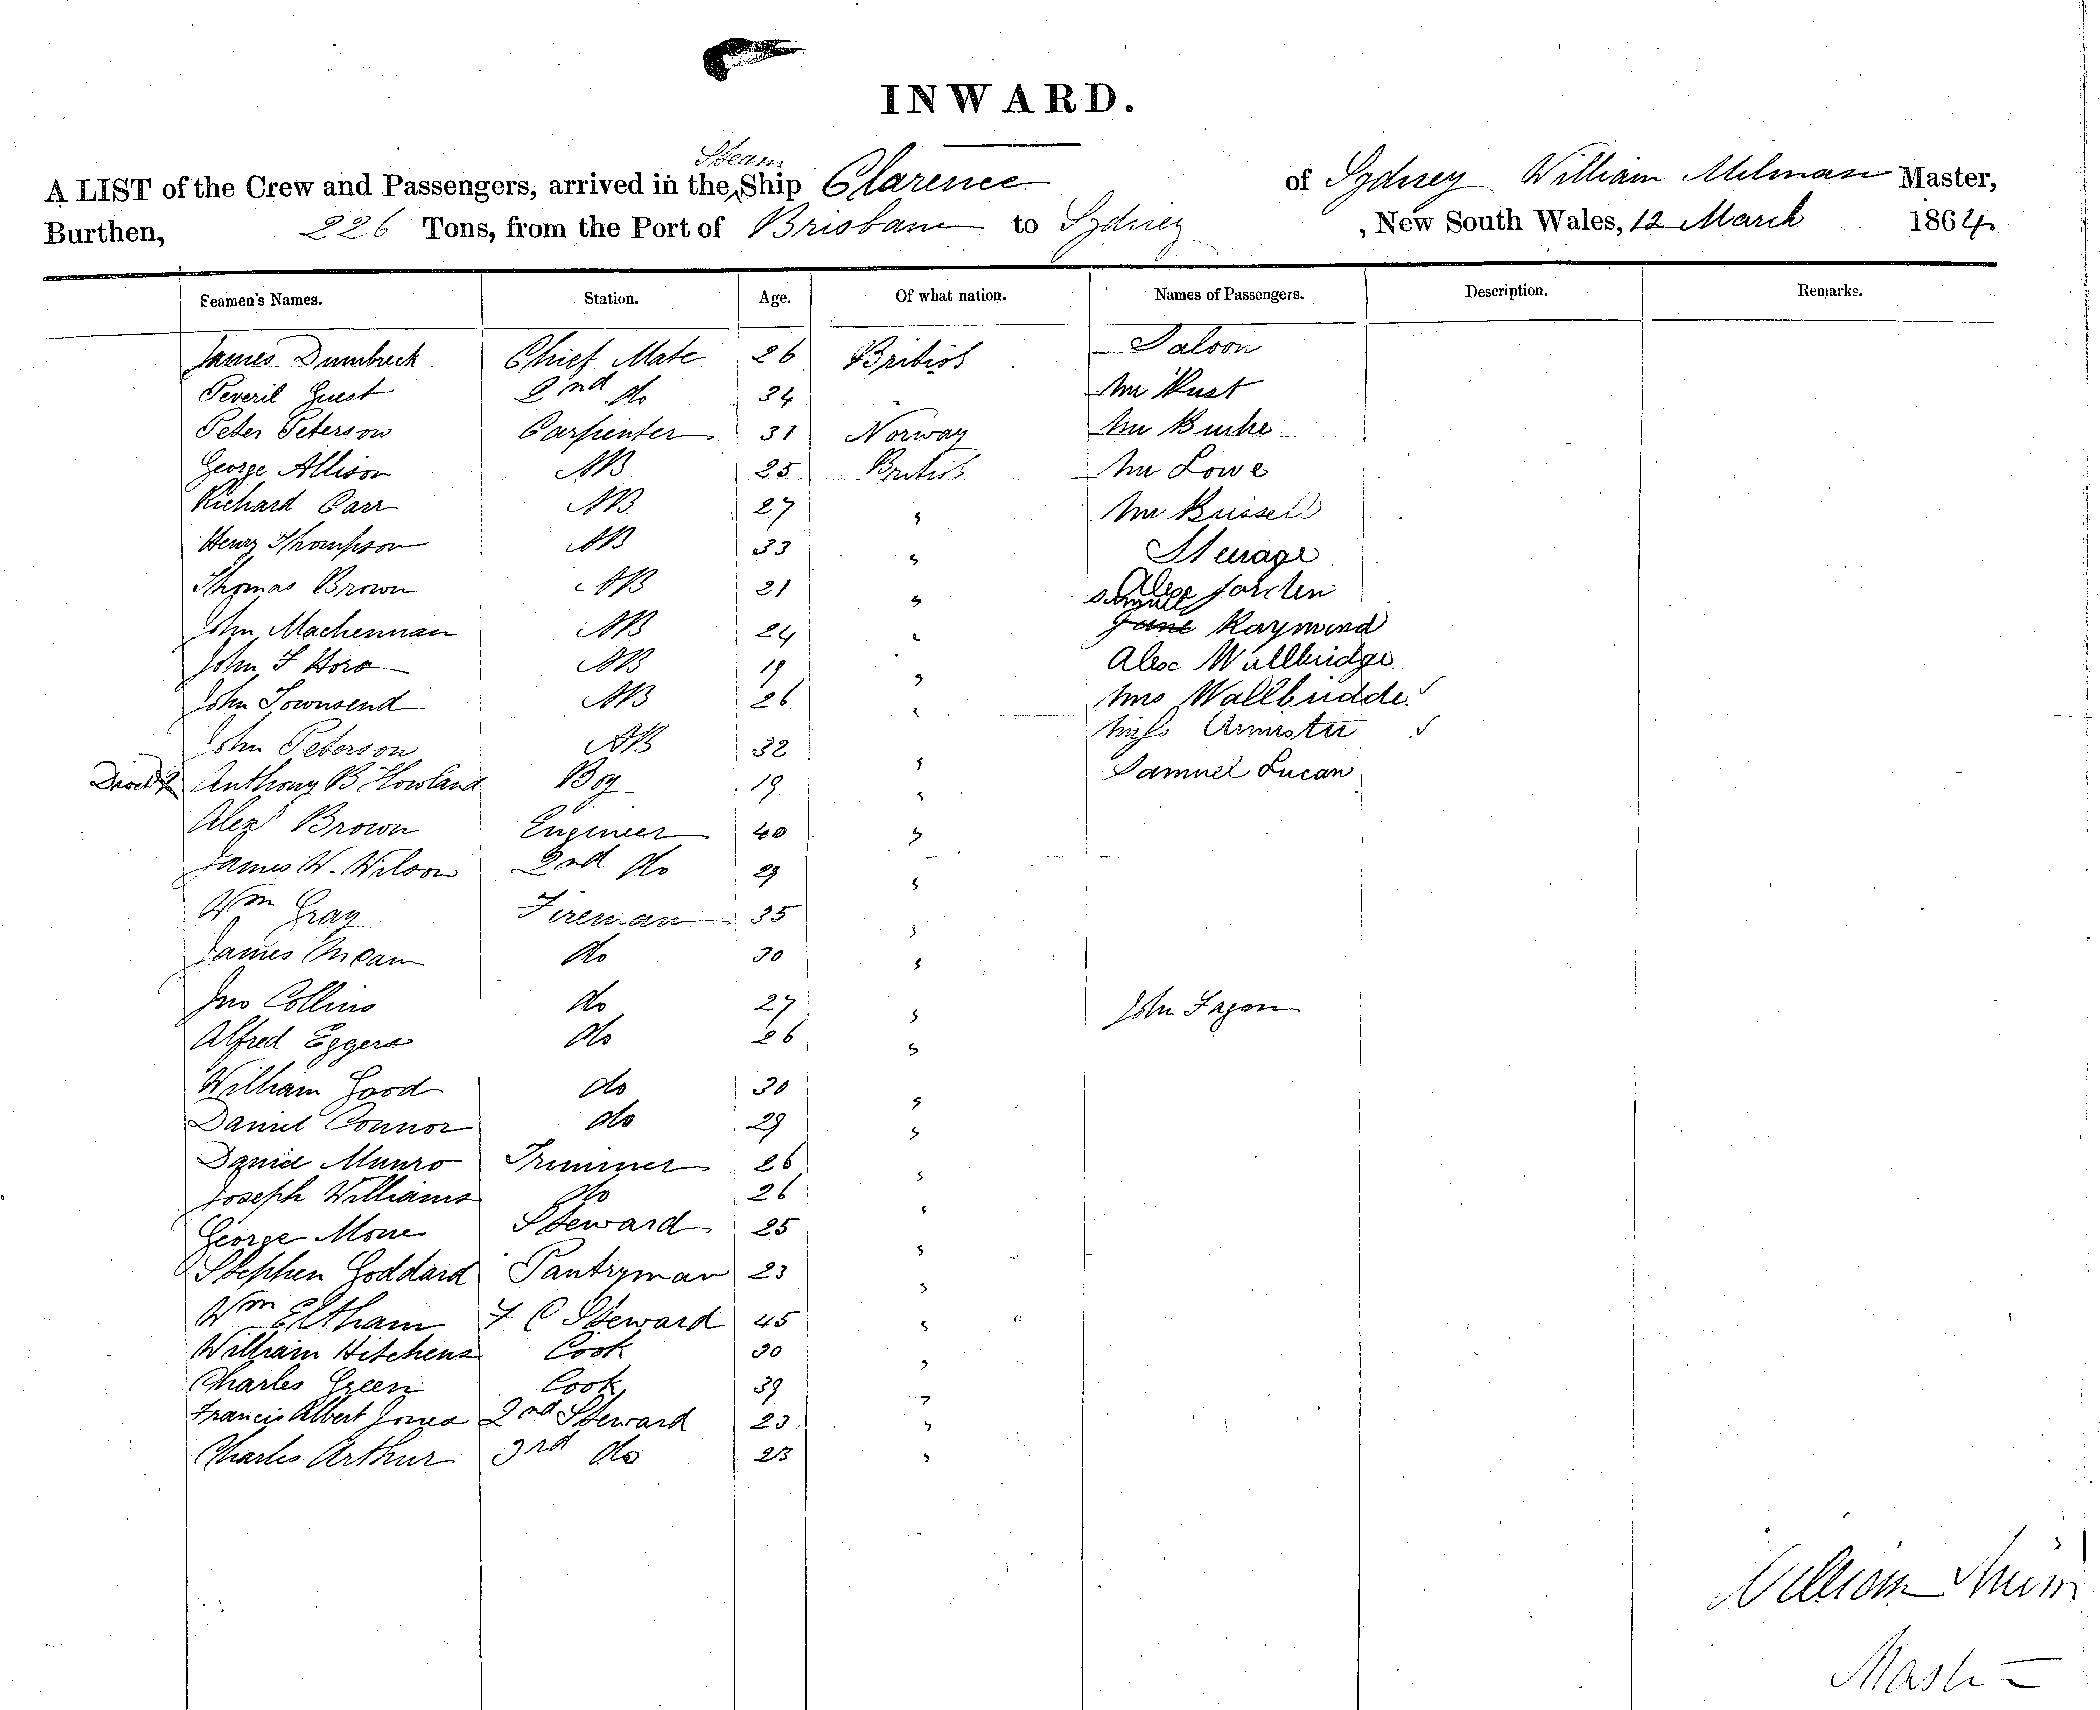 INWARD.
Steam
A LIST of the Crew and Passengers, arrived in the Ship Clarence of Sydney William Milman Master,
Burthen, 226 Tons, from the Port of Brisbane to Sydney , New South Wales, 12 March 1864
Seamen's Names. Station. Age. Of what nation. Names of Passengers. Description. Remarks.
James Dumbreck Chief Mate 26 British Saloon
Peveril Guest 2nd do 34 Mr Rust
Peter Peterson Carpenter 31 Norway Mr Burke
George Allison AB 25 British Mr Lowe
Richard Carr AB 27 " Mr Russell
Henry Thompson AB 33 " Steerage
Thomas Brown AB 21 " Alex Jorden
Samuel
John Mackennan AB 24 " Jane Raymond
John F Horo AB 19 " Alex Wallbridge
John Townsend AB 26 " Mrs Wallbridde
John Peterson AB 32 " Miss
Anthony B Howland Boy 19 " Samuel Lucan
Alexr Brown Engineer 40 "
James W. Wilson 2nd do 29 "
Wm Gray Fireman 35 "
James 30 do "
Jno Collins do 27 " John Fagan
Alfred Eggers do 26 "
William Good do 30 "
Daniel Connor do 29 "
David Munro Trimmer 26 "
Joseph Williams do 26 "
George Steward 25 "
Stephen Goddard Pantryman 23 "
Wm Eltham F C Steward 45 "
William Hitchens Cook 30 "
Charles Green Cook 39 "
Francis Albert Jones 2nd Steward 23 "
Charles Arthur 3rd do 23 "
William
Master